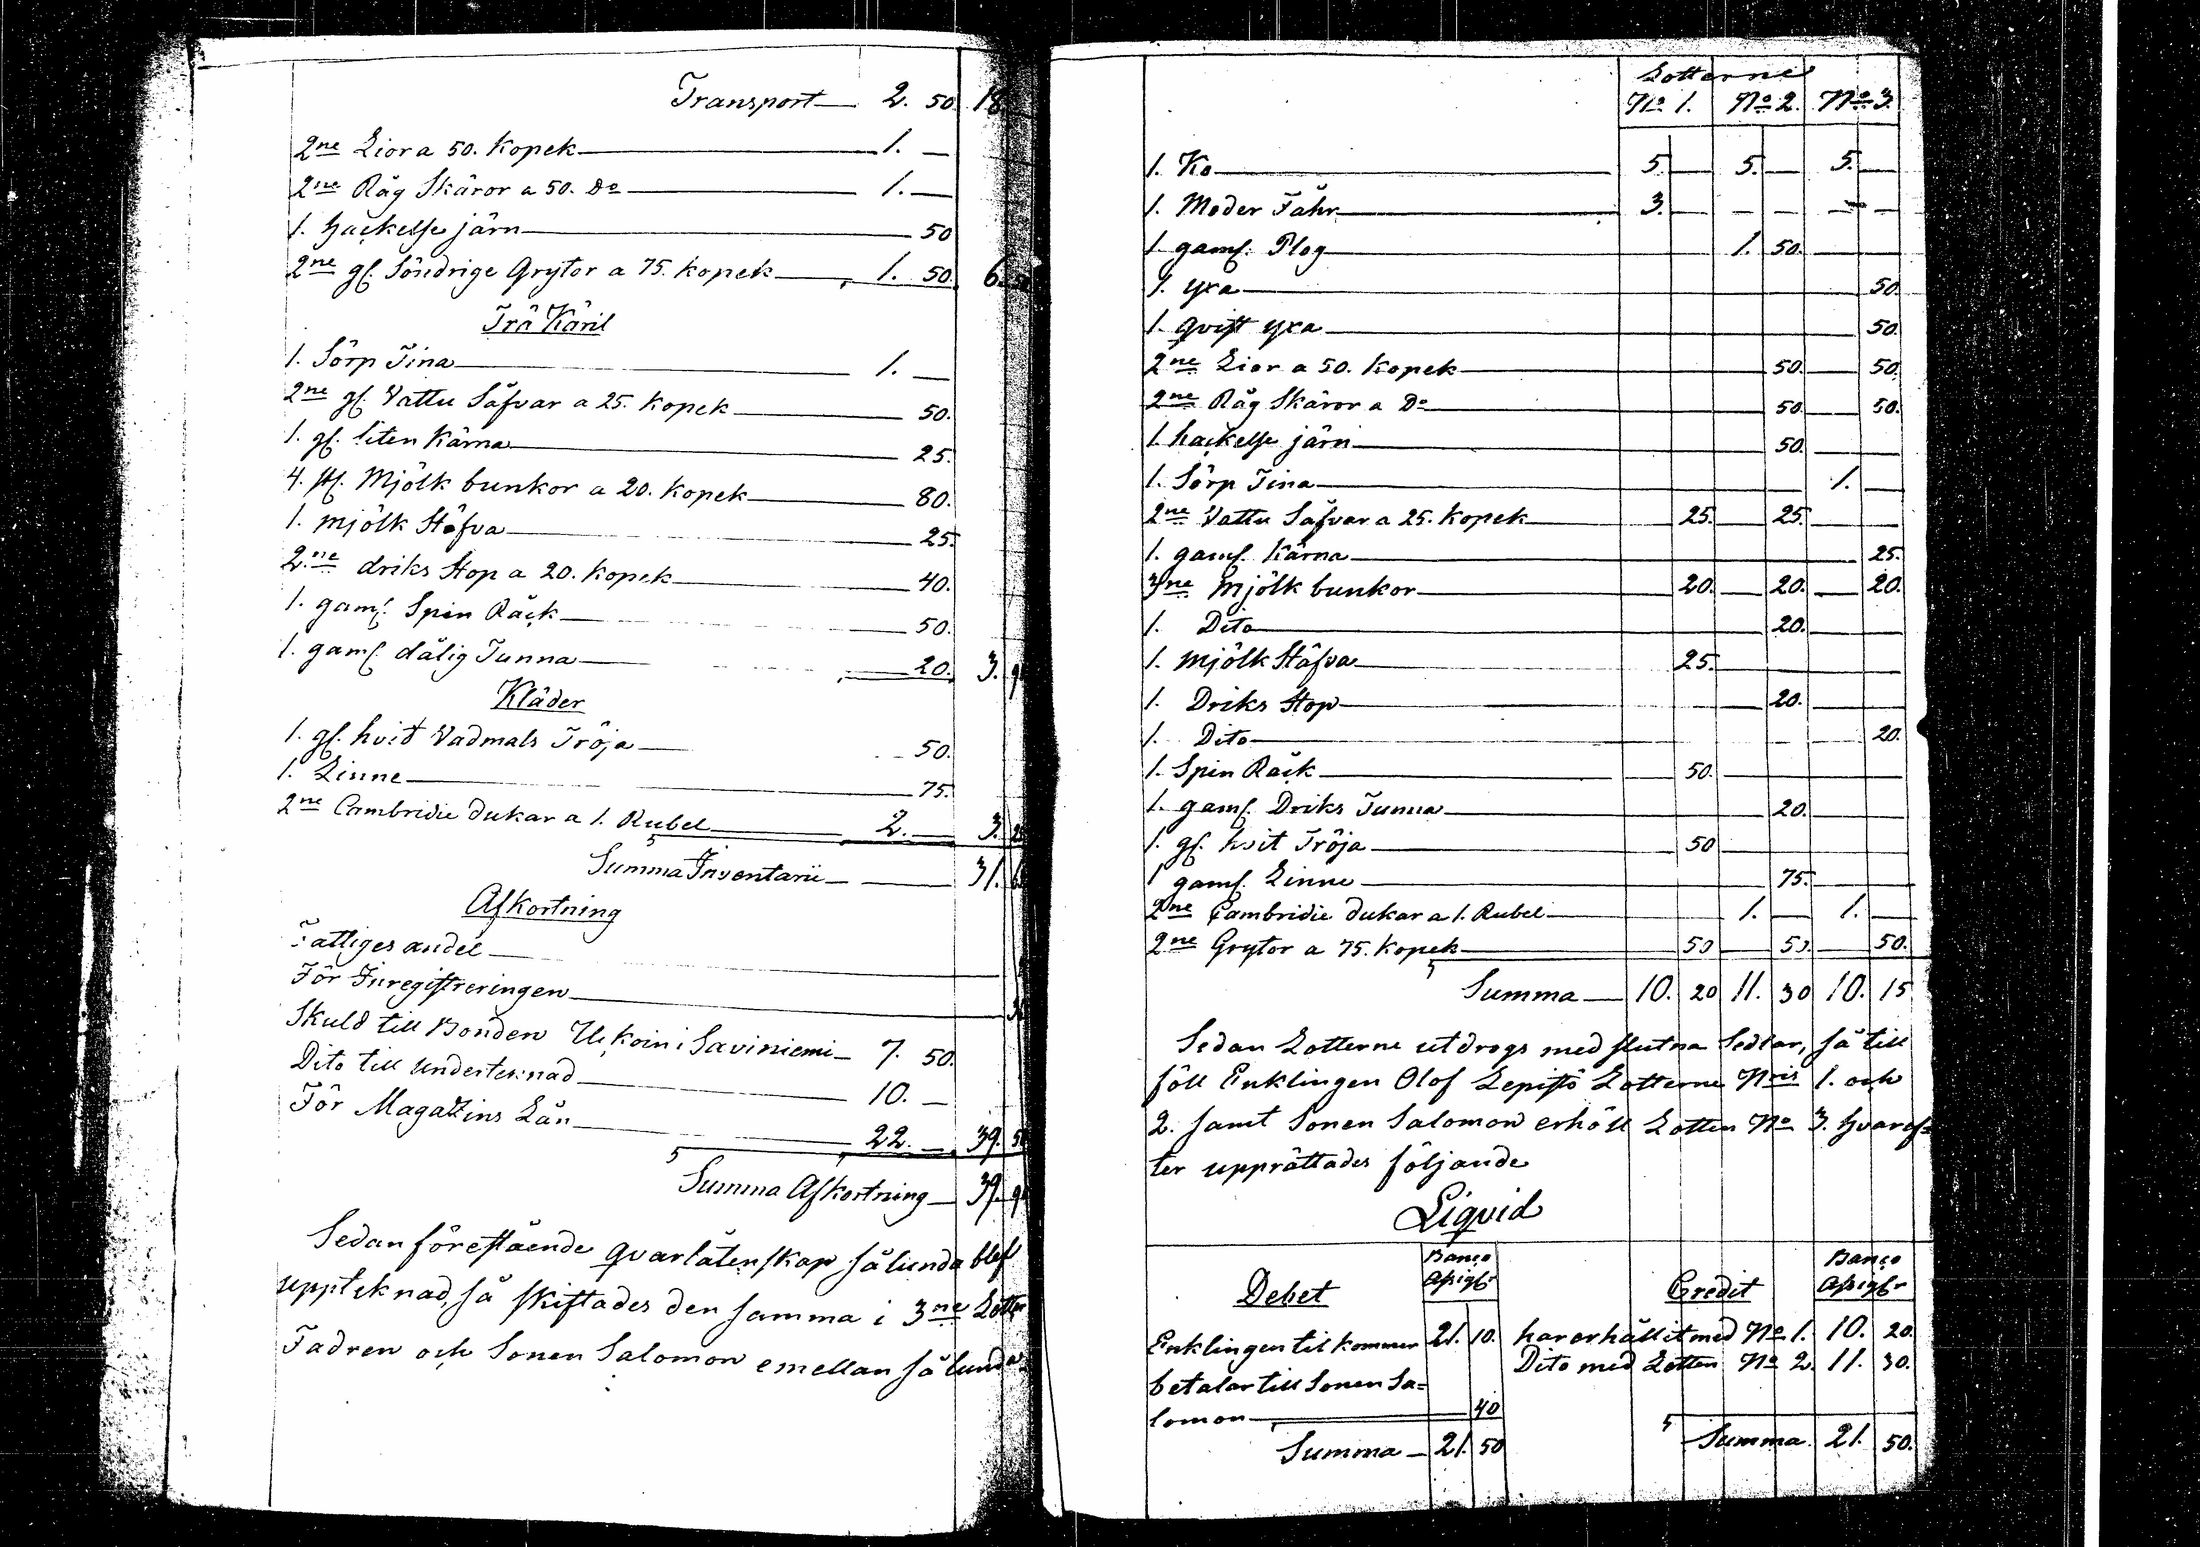 Transport 2. 50. 18
2ne Liar a 50. Kopek 1. —
2ne Råg Skäror a 50. Do 1. —
1. hackelse järn 50
2ne gl. Söndrige Grytor a 75. kopek 1. 50. 6.
Trä Käril
1. Sörp Tina 1. —
2ne gl. Vattu Såfvar a 25. Kopek 50.
1. gl. liten Kärna 25.
4. st. Mjölk bunkor a 20. Kopek 80.
1. mjölk Stäfva 25.
2ne driks Stop a 20. Kopek 40.
1. gaml. Spin Räck 50.
1. gaml. dålig Tunna 20. 3. 90
Kläder
1. gl. hvit Vadmals Tröja 50.
1. Linne 75.
2ne Cambridie dukar a 1. Rubel 2. — 3. 25
Summa Inventarii 31.
Afkortning
Fattiges andel
För Inregistreringen
Skuld till Bonden i Saviniemi 7. 50.
Dito till undertecknad 10. —
För Magazins Lån 22. — 39. 50
Summa Afkortning 39. 90
Sedan föreståènde qvarlåtenskap sålunda blef
uppteknad, så skiftades den samma i 3ne Lotter
Fadren och Sonen Salomon emellan sålunda
Lotterne
No 1. No 2. No 3.
1. Ko 5. — 5. — 5. —
1. Moder Fåhr 3. — — — — —
1. gaml. Plog 1. 50.
1. yxa 50.
1. qvist yxa 50.
2ne Liar a 50. Kopek 50. 50.
2ne Råg Skäror a Do 50. 50.
1. hackelse järn 50.
1. Sörp Tina 1. —
2ne Vattu Såfvar a 25. Kopek 25. 25.
1. gaml. Kärna 25.
3ne Mjölk bunkor 20. 20. 20.
1. Dito 20.
1. mjölk Stäfva 25.
1. Driks Stop 20.
1. Dito 20.
1. Spin Räck 50.
1. gaml. Driks Tunna 20.
1. gl. hvit Tröja 50
1 gaml. Linne 75.
2ne Cambridie dukar a 1. Rubel 1. — 1. —
2ne Grytor a 75. Kopek 50 50. 50.
Summa 10. 20 11. 30 10. 15
Sedan Lotterne utdrogs med slutna Sedlar, så till
föll Enklingen Olof Lepistö Lotterne Nris 1. och
2. samt Sonen Salomon erhöll Lotten No 3. hvaref=
ter upprättades följande
Liqvid
Debet Banco Assigr Credit Banco Assigr
Enklingen tilkommer 21. 10. har erhållit med No 1. 10. 20.
betalar till Sonen Sa= Dito med Lotten No 2. 11. 30.
lomon 40
Summa 21. 50 Summa 21. 50.